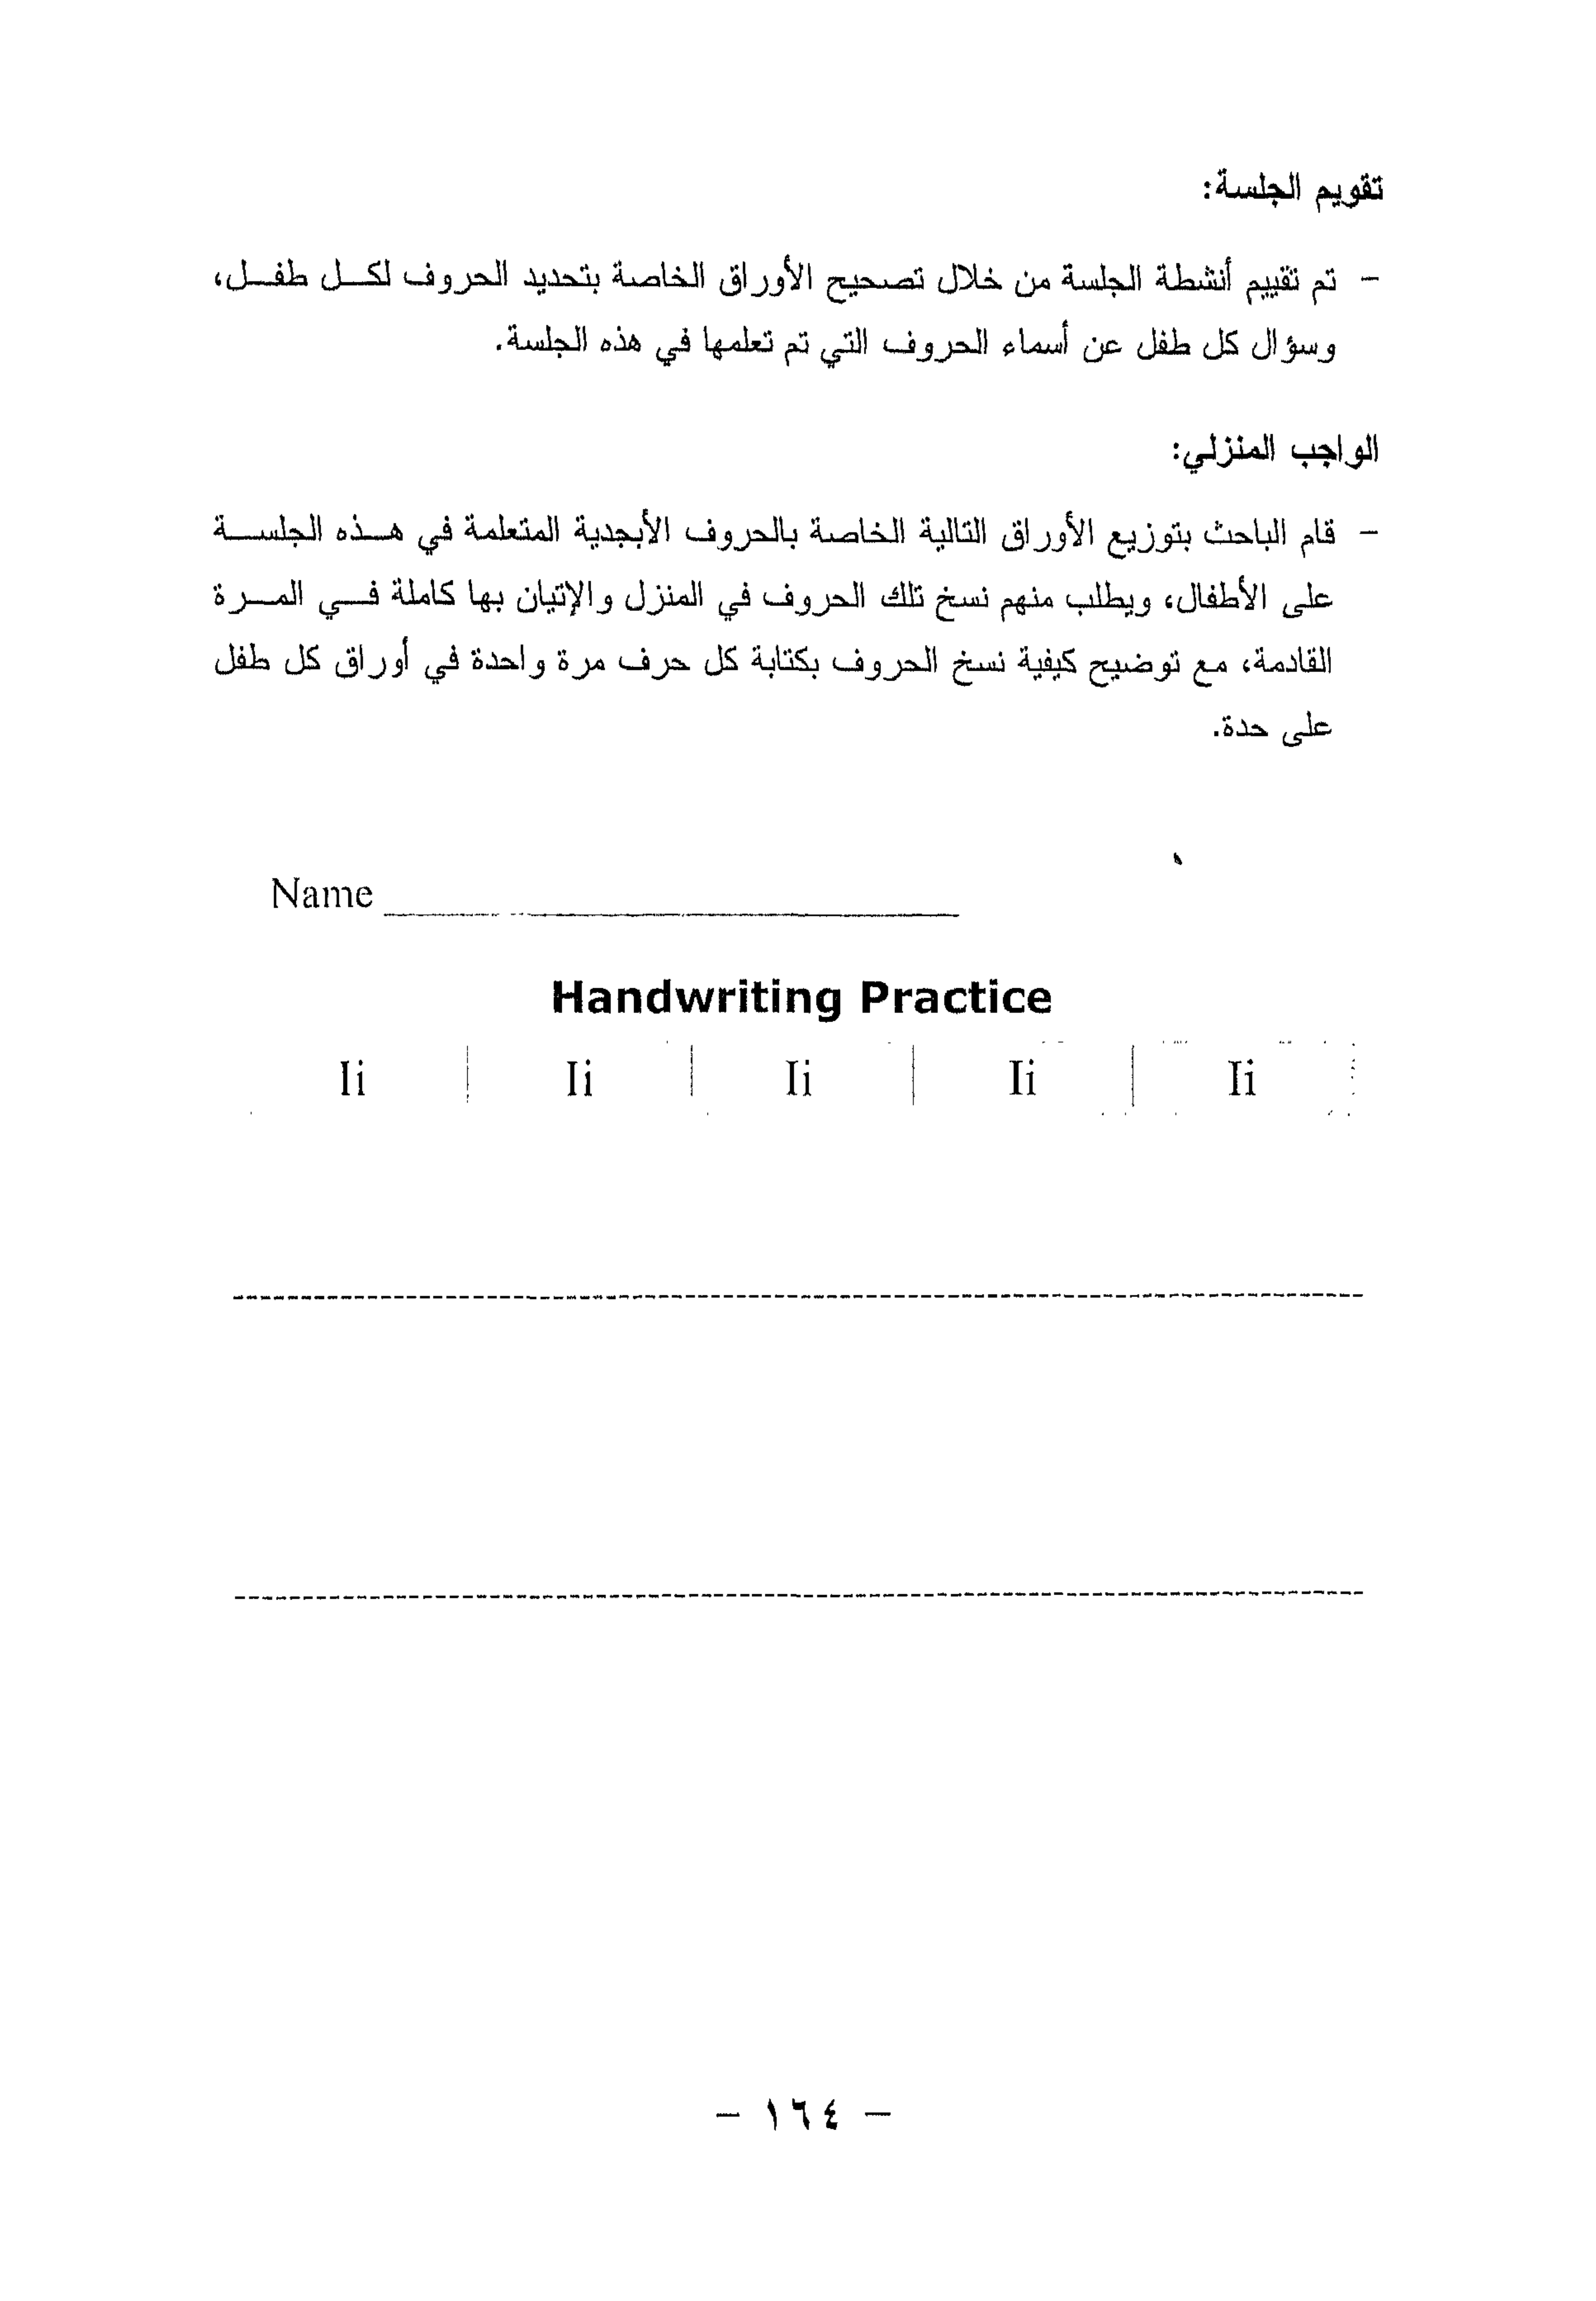 تقويم الجلسة:
- تم تقييم أنشطة الجلسة من خلال تصحيح الأوراق الخاصة بتحديد الحروف لكل طفل،
وسؤال كل طفل عن أسماء الحروف التي تم تعلمها في هذه الجلسة.
الواجب المنزلي:
- قام الباحث بتوزيع الأوراق التالية الخاصة بالحروف الأبجدية المتعلمة في هذه الجلسة
على الأطفال، ويطلب منهم نسخ تلك الحروف في المنزل والإتيان بها كاملة في المرة
القادمة، مع توضيح كيفية نسخ الحروف بكتابة كل حرف مرة واحدة في أوراق كل طفل
على حدة.
Name
Handwriting Practice
Ii Ii Ii Ii Ii
- ١٦٤ -